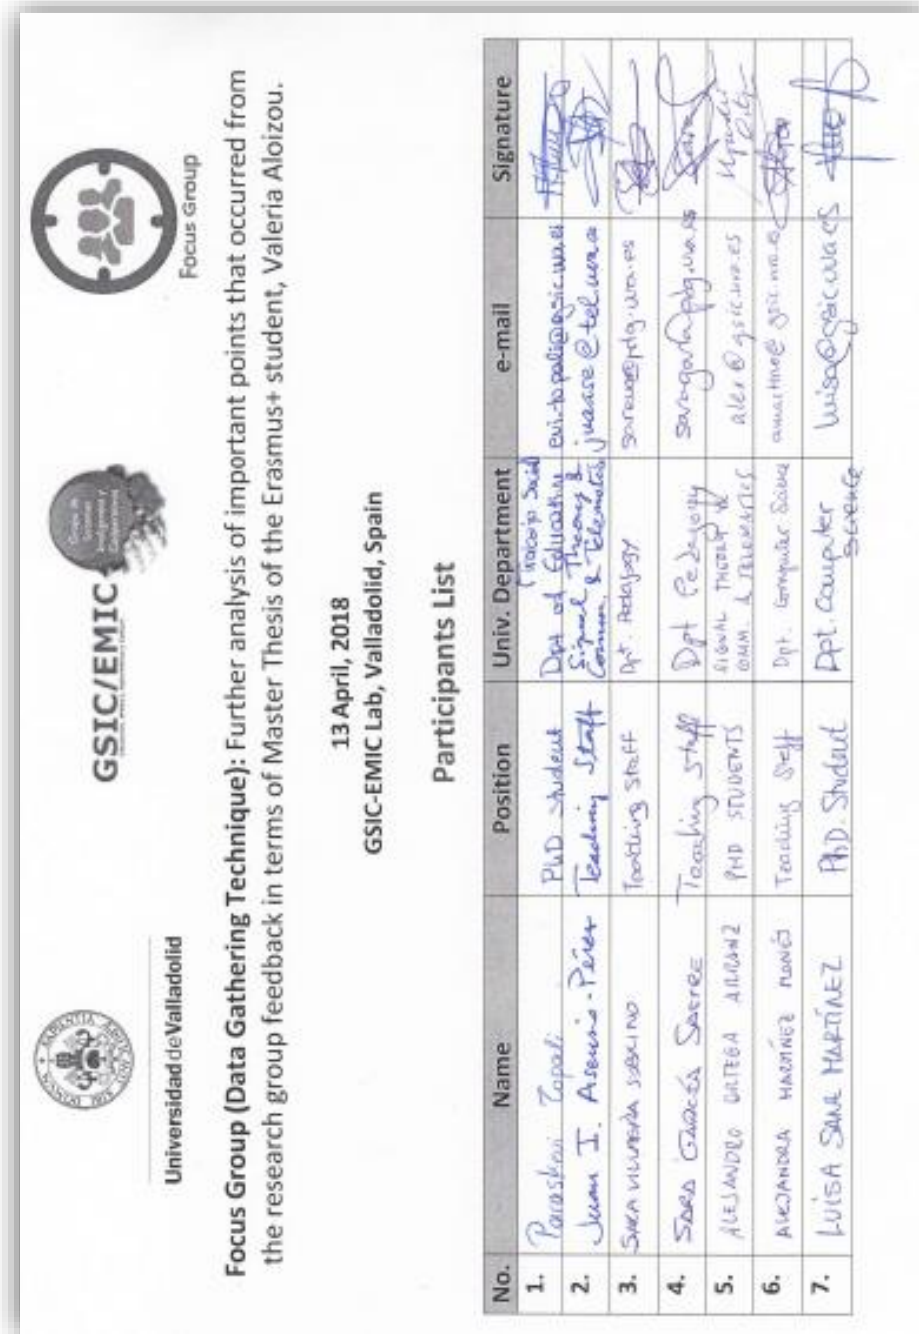 Universidad de Valladolid
GSIC/EMIC
Focus Group
Focus Group (Data Gathering Technique): Further analysis of important points that occurred from
the research group feedback in terms of Master Thesis of the Erasmus+ student, Valeria Aloizou.
13 April, 2018
GSIC-EMIC Lab, Valladolid, Spain
Participants List
No. Name Position Univ. Department e-mail Signature
1. Paraskevi Topali PhD student Dpt of Education
2. Juan I. Asensio-Pérez Teaching Staff Signal Theory & Comm. & Telematics juaase@tel.uva.es
3. SARA VILLAGRÁ SOBRINO Teaching Staff Dpt. Pedagogy
4. SARA GARCÍA SASTRE Teaching Staff Dpt Pedagogy
5. ALEJANDRO ORTEGA ARRANZ PHD STUDENTS SIGNAL THEORY COMM. & TELEMATICS alex@gsic.uva.es
6. ALEJANDRA MARTÍNEZ MONÉS Teaching Staff Dpt. Computer Science amartine@gsic.uva.es
7. LUISA SANZ MARTÍNEZ PhD. Student Dpt. Computer Science luisa@gsic.uva.es